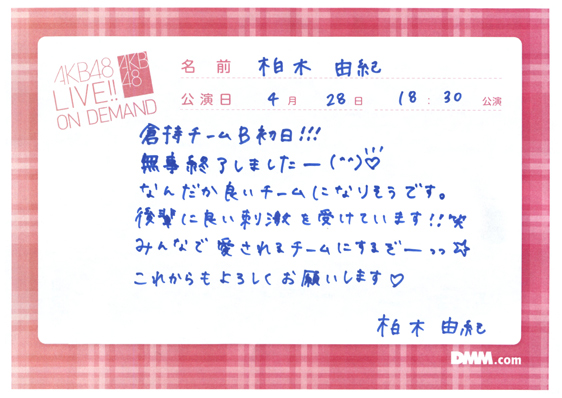 AKB48
LIVE!!
ON DEMAND
AKB
48
名前 柏木 由紀
公演日 4月 28日 18:30 公演
倉持チームB初日!!!
無事終了しましたー(^^)♡
なんだか良いチームになりそうです。
後輩に良い刺激を受けています!!
みんなで愛されるチームにするぞーっっ☆
これからもよろしくお願いします♡
柏木 由紀
DMM.com